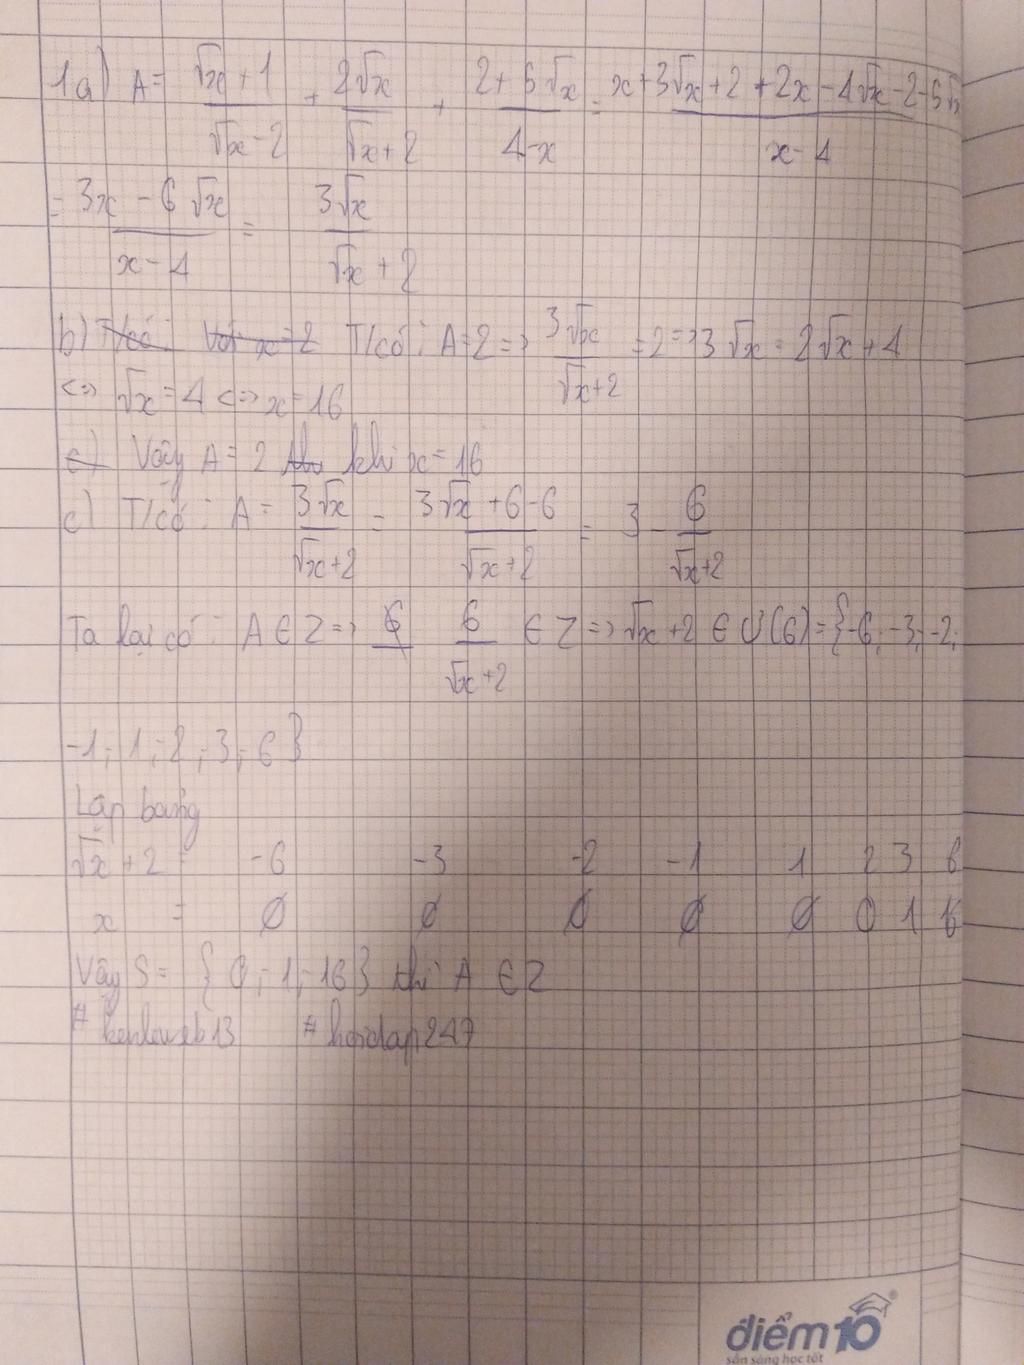 1a) A = (√x + 1)/(√x - 2) + 2√x/(√x + 2) + (2 + 5√x)/(4 - x) = (x + 3√x + 2 + 2x - 4√x - 2 - 5√x)/(x - 4)
= (3x - 6√x)/(x - 4) = 3√x/(√x + 2)
b) T/có: Với x = 2 T/có: A = 2 => 3√x/(√x + 2) = 2 => 3√x = 2√x + 4
<=> √x = 4 <=> x = 16
c) Vậy A = 2 khi x = 16
c) T/có: A = 3√x/(√x + 2) = (3√x + 6 - 6)/(√x + 2) = 3 - 6/(√x + 2)
Ta lại có: A ∈ Z => 6 6/(√x + 2) ∈ Z => √x + 2 ∈ Ư(6) = {-6; -3; -2;
-1; 1; 2; 3; 6}
Lập bảng
√x + 2 = -6 -3 -2 -1 1 2 3 6
x = ∅ ∅ ∅ ∅ ∅ 0 1 16
Vậy S = {0; 1; 16} thì A ∈ Z
#hoidap247
điểm10
sẵn sàng học tốt